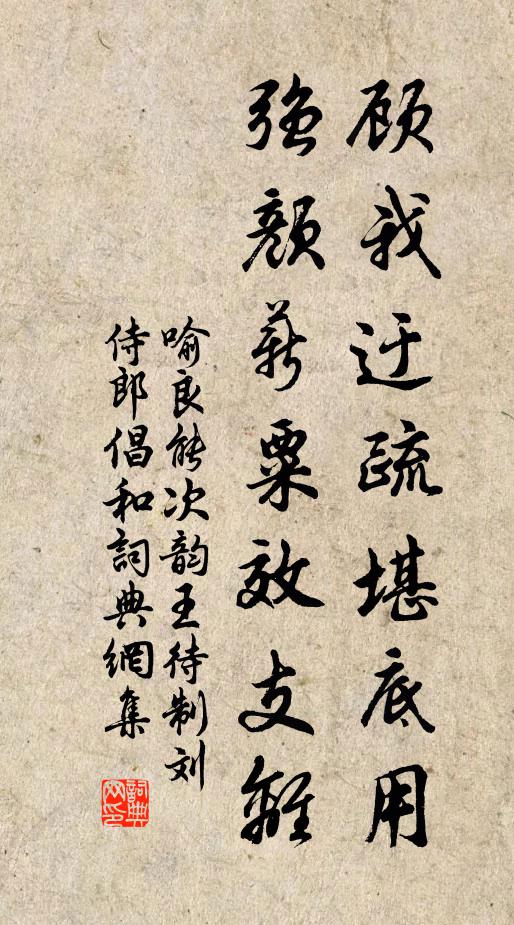 顾我迂疏堪底用
强颜薪粟效支離
喻良能次韵王待制刘
侍郎倡和詞典網集
詞典网印